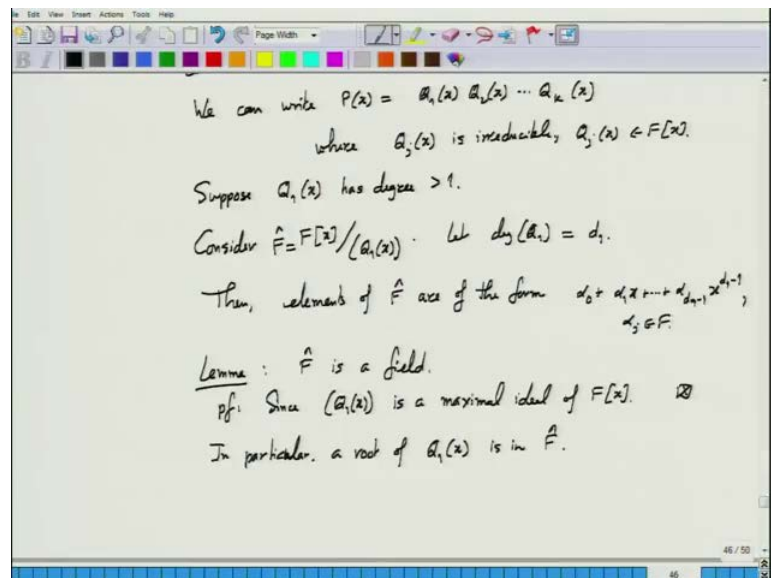 File Edit View Insert Actions Tools Help
Page Width
We can write P(x) = Q₁(x) Q₂(x) ... Qₖ(x)
where Qⱼ(x) is irreducible, Qⱼ(x) ∈ F[x].
Suppose Q₁(x) has degree > 1.
Consider F̂ = F[x]/(Q₁(x)). Let deg(Q₁) = d₁.
Then, elements of F̂ are of the form α₀ + α₁x + ... + α_{d₁-1} x^{d₁-1},
αⱼ ∈ F.
Lemma : F̂ is a field.
pf: Since (Q₁(x)) is a maximal ideal of F[x]. ⊠
In particular, a root of Q₁(x) is in F̂.
46 / 50
46